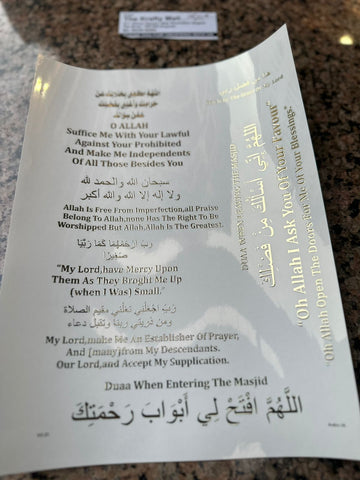 The Krafty Wall
اللهم اكفني بحلالك عن
حرامك وأغنني بفضلك
عمن سواك
O ALLAH
Suffice Me With Your Lawful
Against Your Prohibited
And Make Me Independents
Of All Those Besides You
سبحان الله والحمد لله
ولا إله إلا الله والله أكبر
Allah Is Free From Imperfection,all Praise
Belong To Allah,none Has The Right To Be
Worshipped But Allah,Allah Is The Greatest.
رَبِّ ارْحَمْهُمَا كَمَا رَبَّيَانِي
صَغِيرًا
"My Lord,have Mercy Upon
Them As They Broght Me Up
(when I Was) Small."
رَبِّ اجْعَلْنِي مُقِيمَ الصَّلَاةِ
وَمِن ذُرِّيَّتِي رَبَّنَا وَتَقَبَّلْ دُعَاء
My Lord,make Me An Establisher Of Prayer,
And [many]from My Descendants.
Our Lord,and Accept My Supplication.
Duaa When Entering The Masjid
اللَّهُمَّ افْتَحْ لِي أَبْوَابَ رَحْمَتِكَ
هذا من فضل ربي
DUAA WHEN LEAVING THE MASJID
اللَّهُمَّ إِنِّي أَسْأَلُكَ مِنْ فَضْلِكَ
"Oh Allah I Ask You Of Your Favour"
"Oh Allah Open The Doors For Me Of Your Blessings."